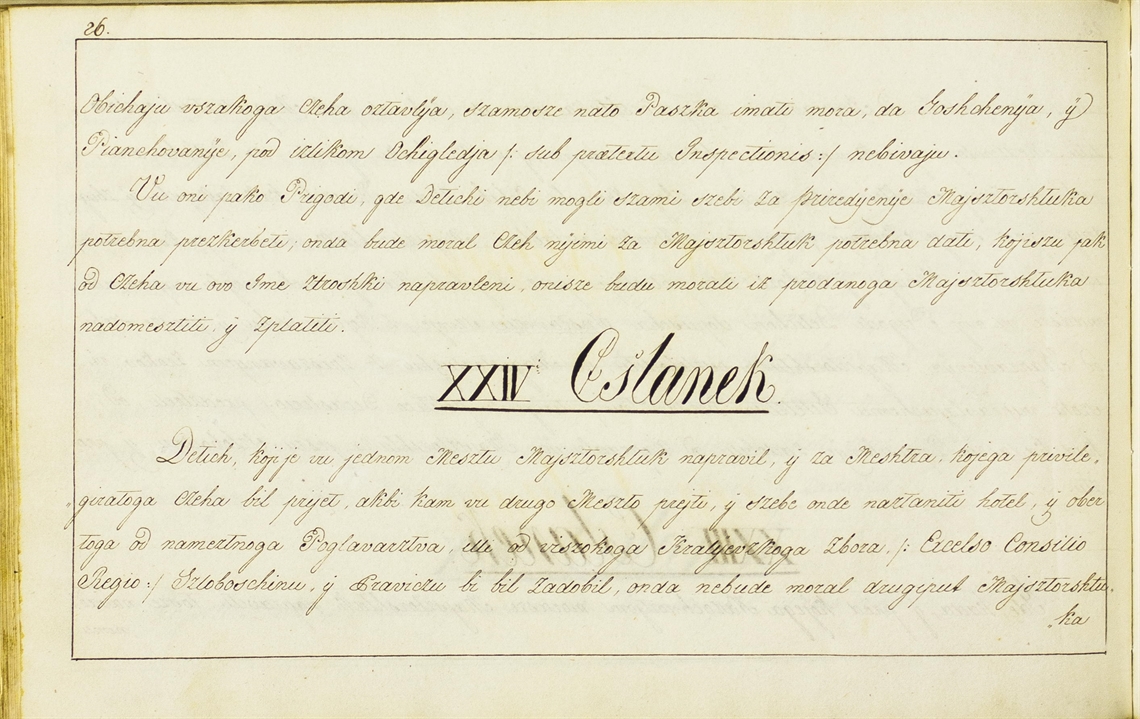 26.
Obichaju vszakoga Czeha oztavlÿa, szamosze nato Paszka imati mora, da Goshchenÿa, ÿ
Pianchovanÿe, pod izlikom Ochigledja /: sub prætextu Inspectionis :/ nebivaju.
Vu oni pako Prigodi, gde Detichi nebi mogli szami szebi za Priredÿenÿe Majsztorshtuka
potrebna prezkerbeti, onda bude moral Czeh nÿimi za Majsztorshtuk potrebna dati, kojiszu pak
od Czeha vu ovo Ime Ztroshki napravleni, onisze budu morali iz prodanoga Majsztorshtuka
nadomesztiti, ÿ zplatiti.
XXIV. Cslanek.
Detich, koji je vu jednom Mesztu Majsztorshtuk napravil, ÿ za Meshtra, kojega privile,
giratoga Czeha bil prijet, akbi kam vu drugo Meszto prejti, ÿ szebe onde naztaniti hotel, ÿ ober
toga od namesztnoga Poglavarztva, illi od vszokoga Kralyevzkoga Zbora, /: Excelso Consilio
Regio :/ Szloboschinu, ÿ Praviczu bi bil zadobil, onda nebude moral drugiput Majsztorshtu,
ka